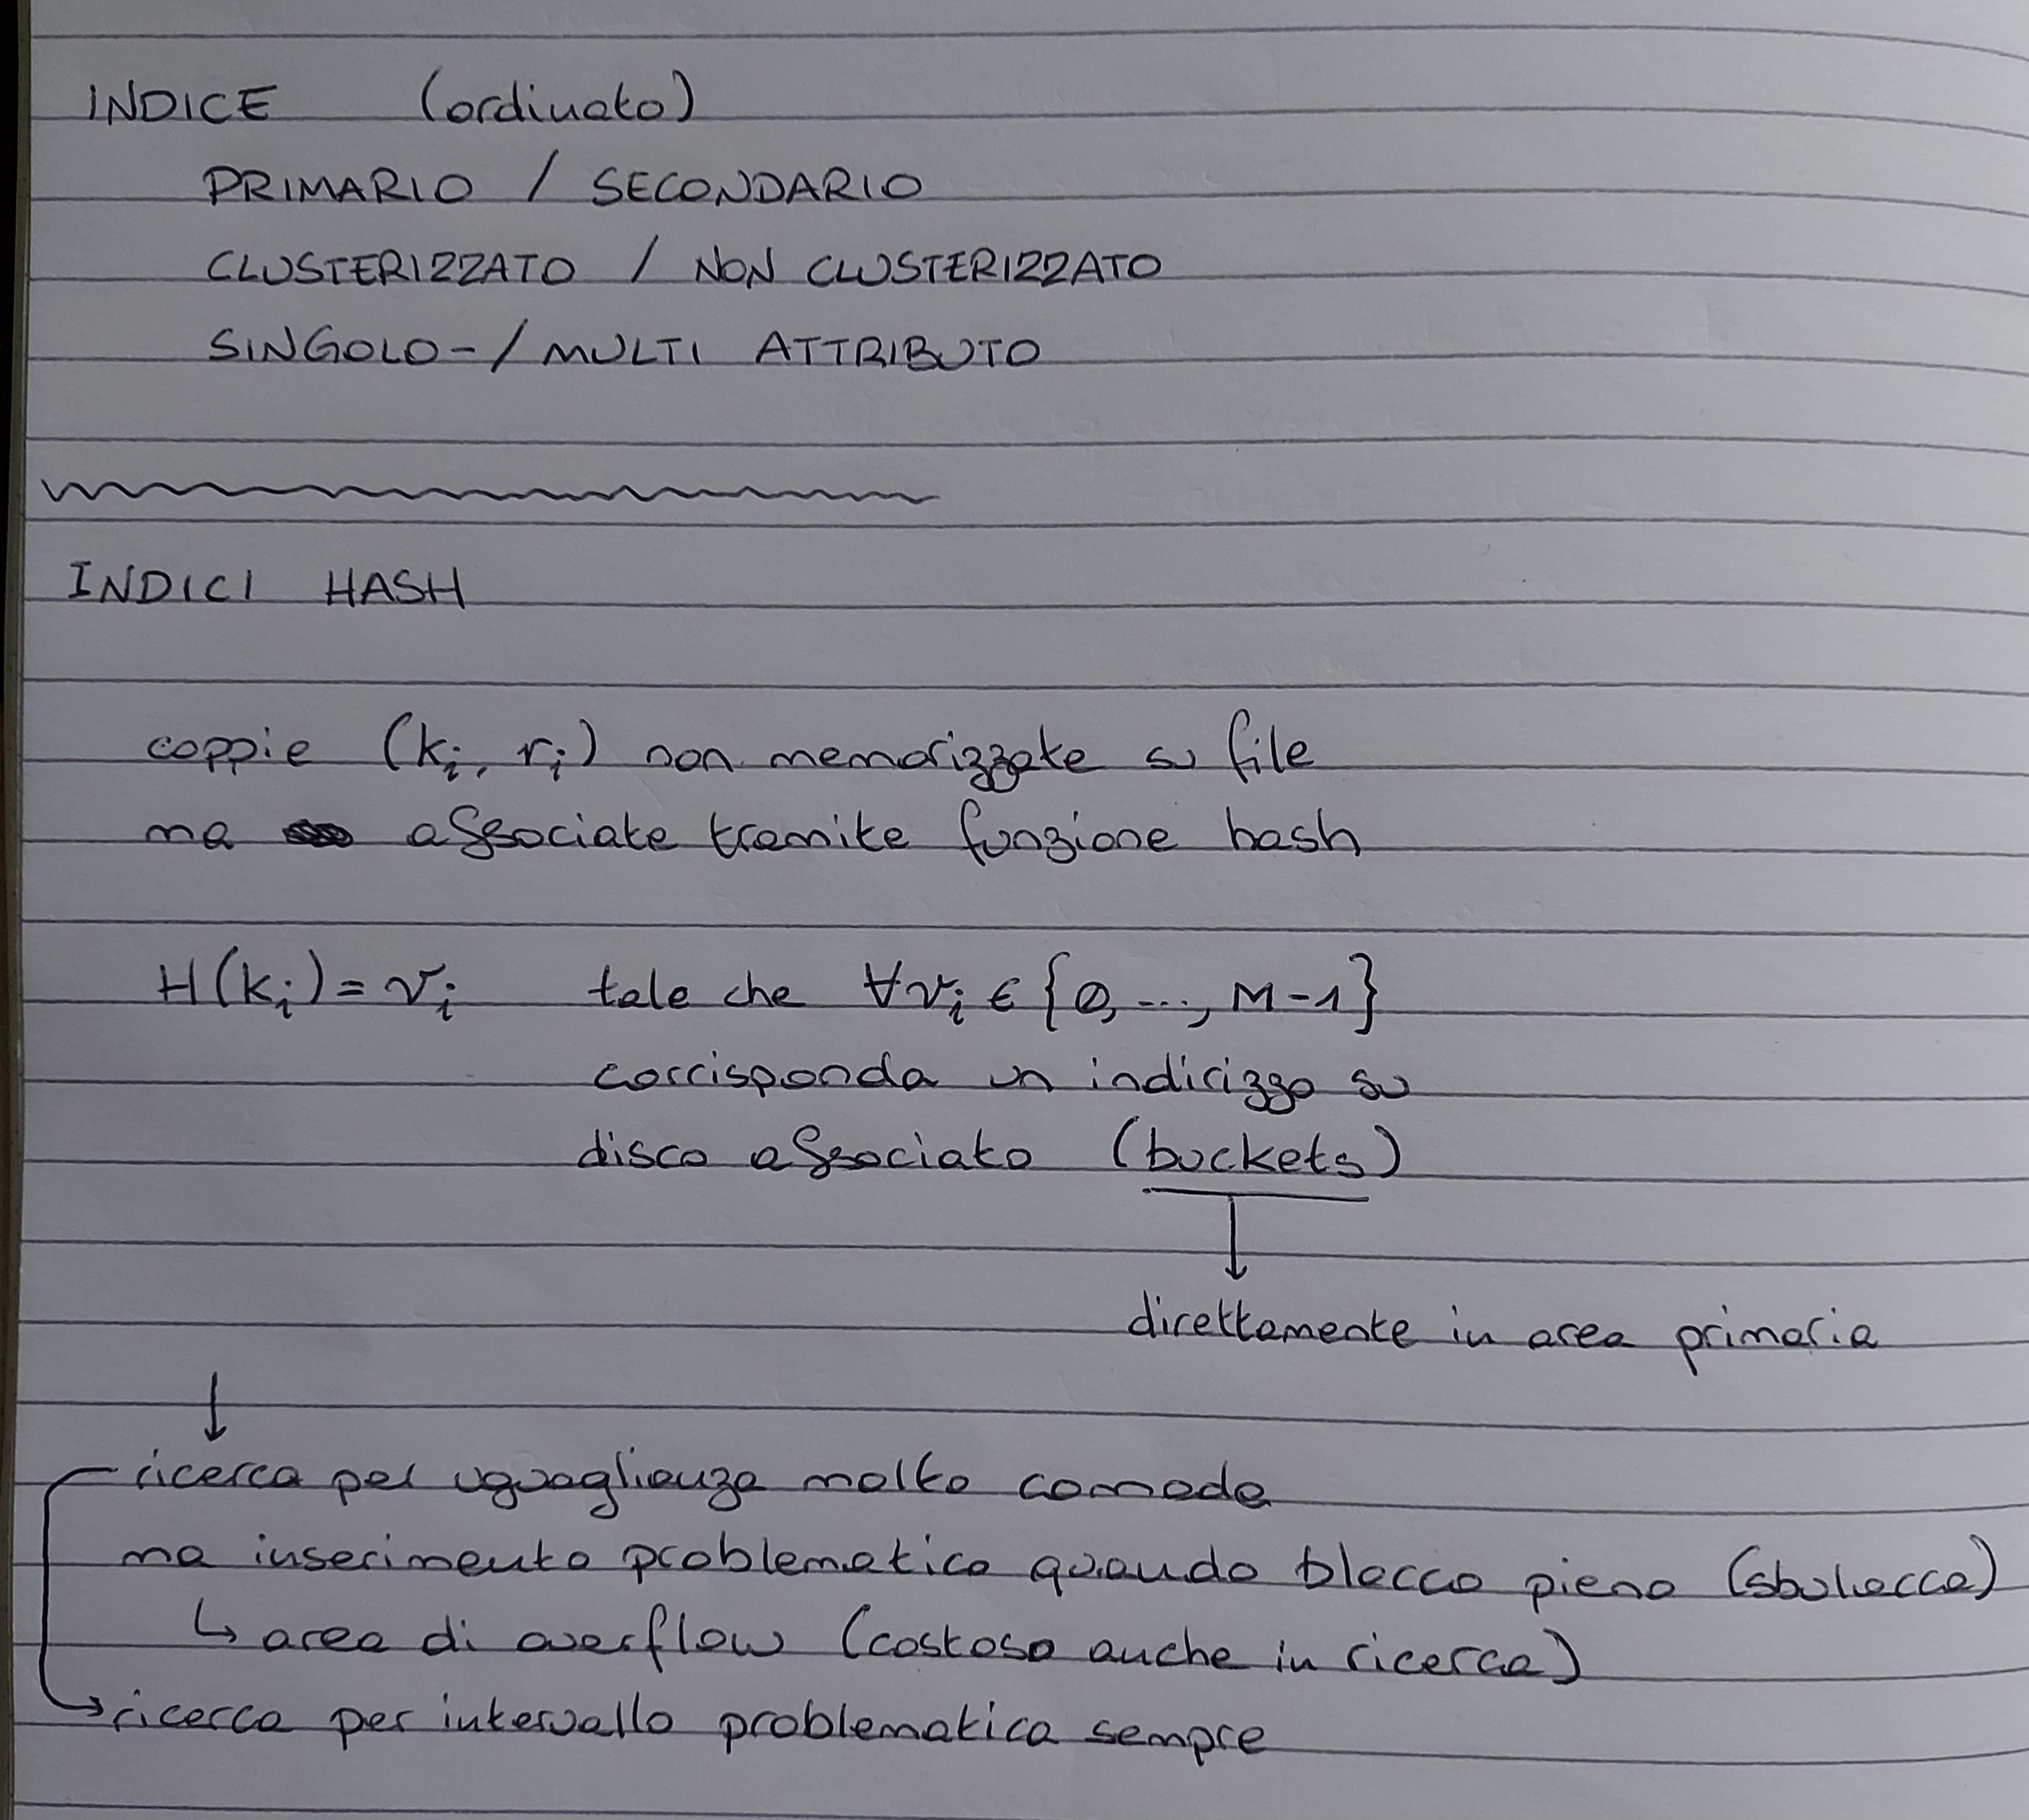 INDICE (ordinato)
PRIMARIO / SECONDARIO
CLUSTERIZZATO / NON CLUSTERIZZATO
SINGOLO-/MULTI ATTRIBUTO
INDICI HASH
coppie (ki, ri) non memorizzate su file
ma associate tramite funzione hash
H(ki) = vi tale che ∀vi ∈ {0, ..., M-1}
corrisponda un indirizzo su
disco associato (buckets)
↓
direttamente in area primaria
↓
ricerca per uguaglianza molto comoda
ma inserimento problematico quando blocco pieno (sbulocco)
↳ area di overflow (costoso anche in ricerca)
→ ricerca per intervallo problematica sempre